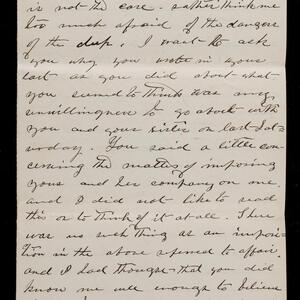 is not the case. rather think me
too much afraid of the dangers
of the deep. I want to ask
you why you wrote in your
last as you did about what
you seemed to think was my
unwillingness to go about with
you and your sister on last Sat-
urday. You said a little con-
cerning the matter of imposing
yours and her company on me
and I did not like to read
this or to think of it at all. There
was no such thing as an imposi-
tion in the above referred to affair.
and I had thought that you did
know me well enough to believe